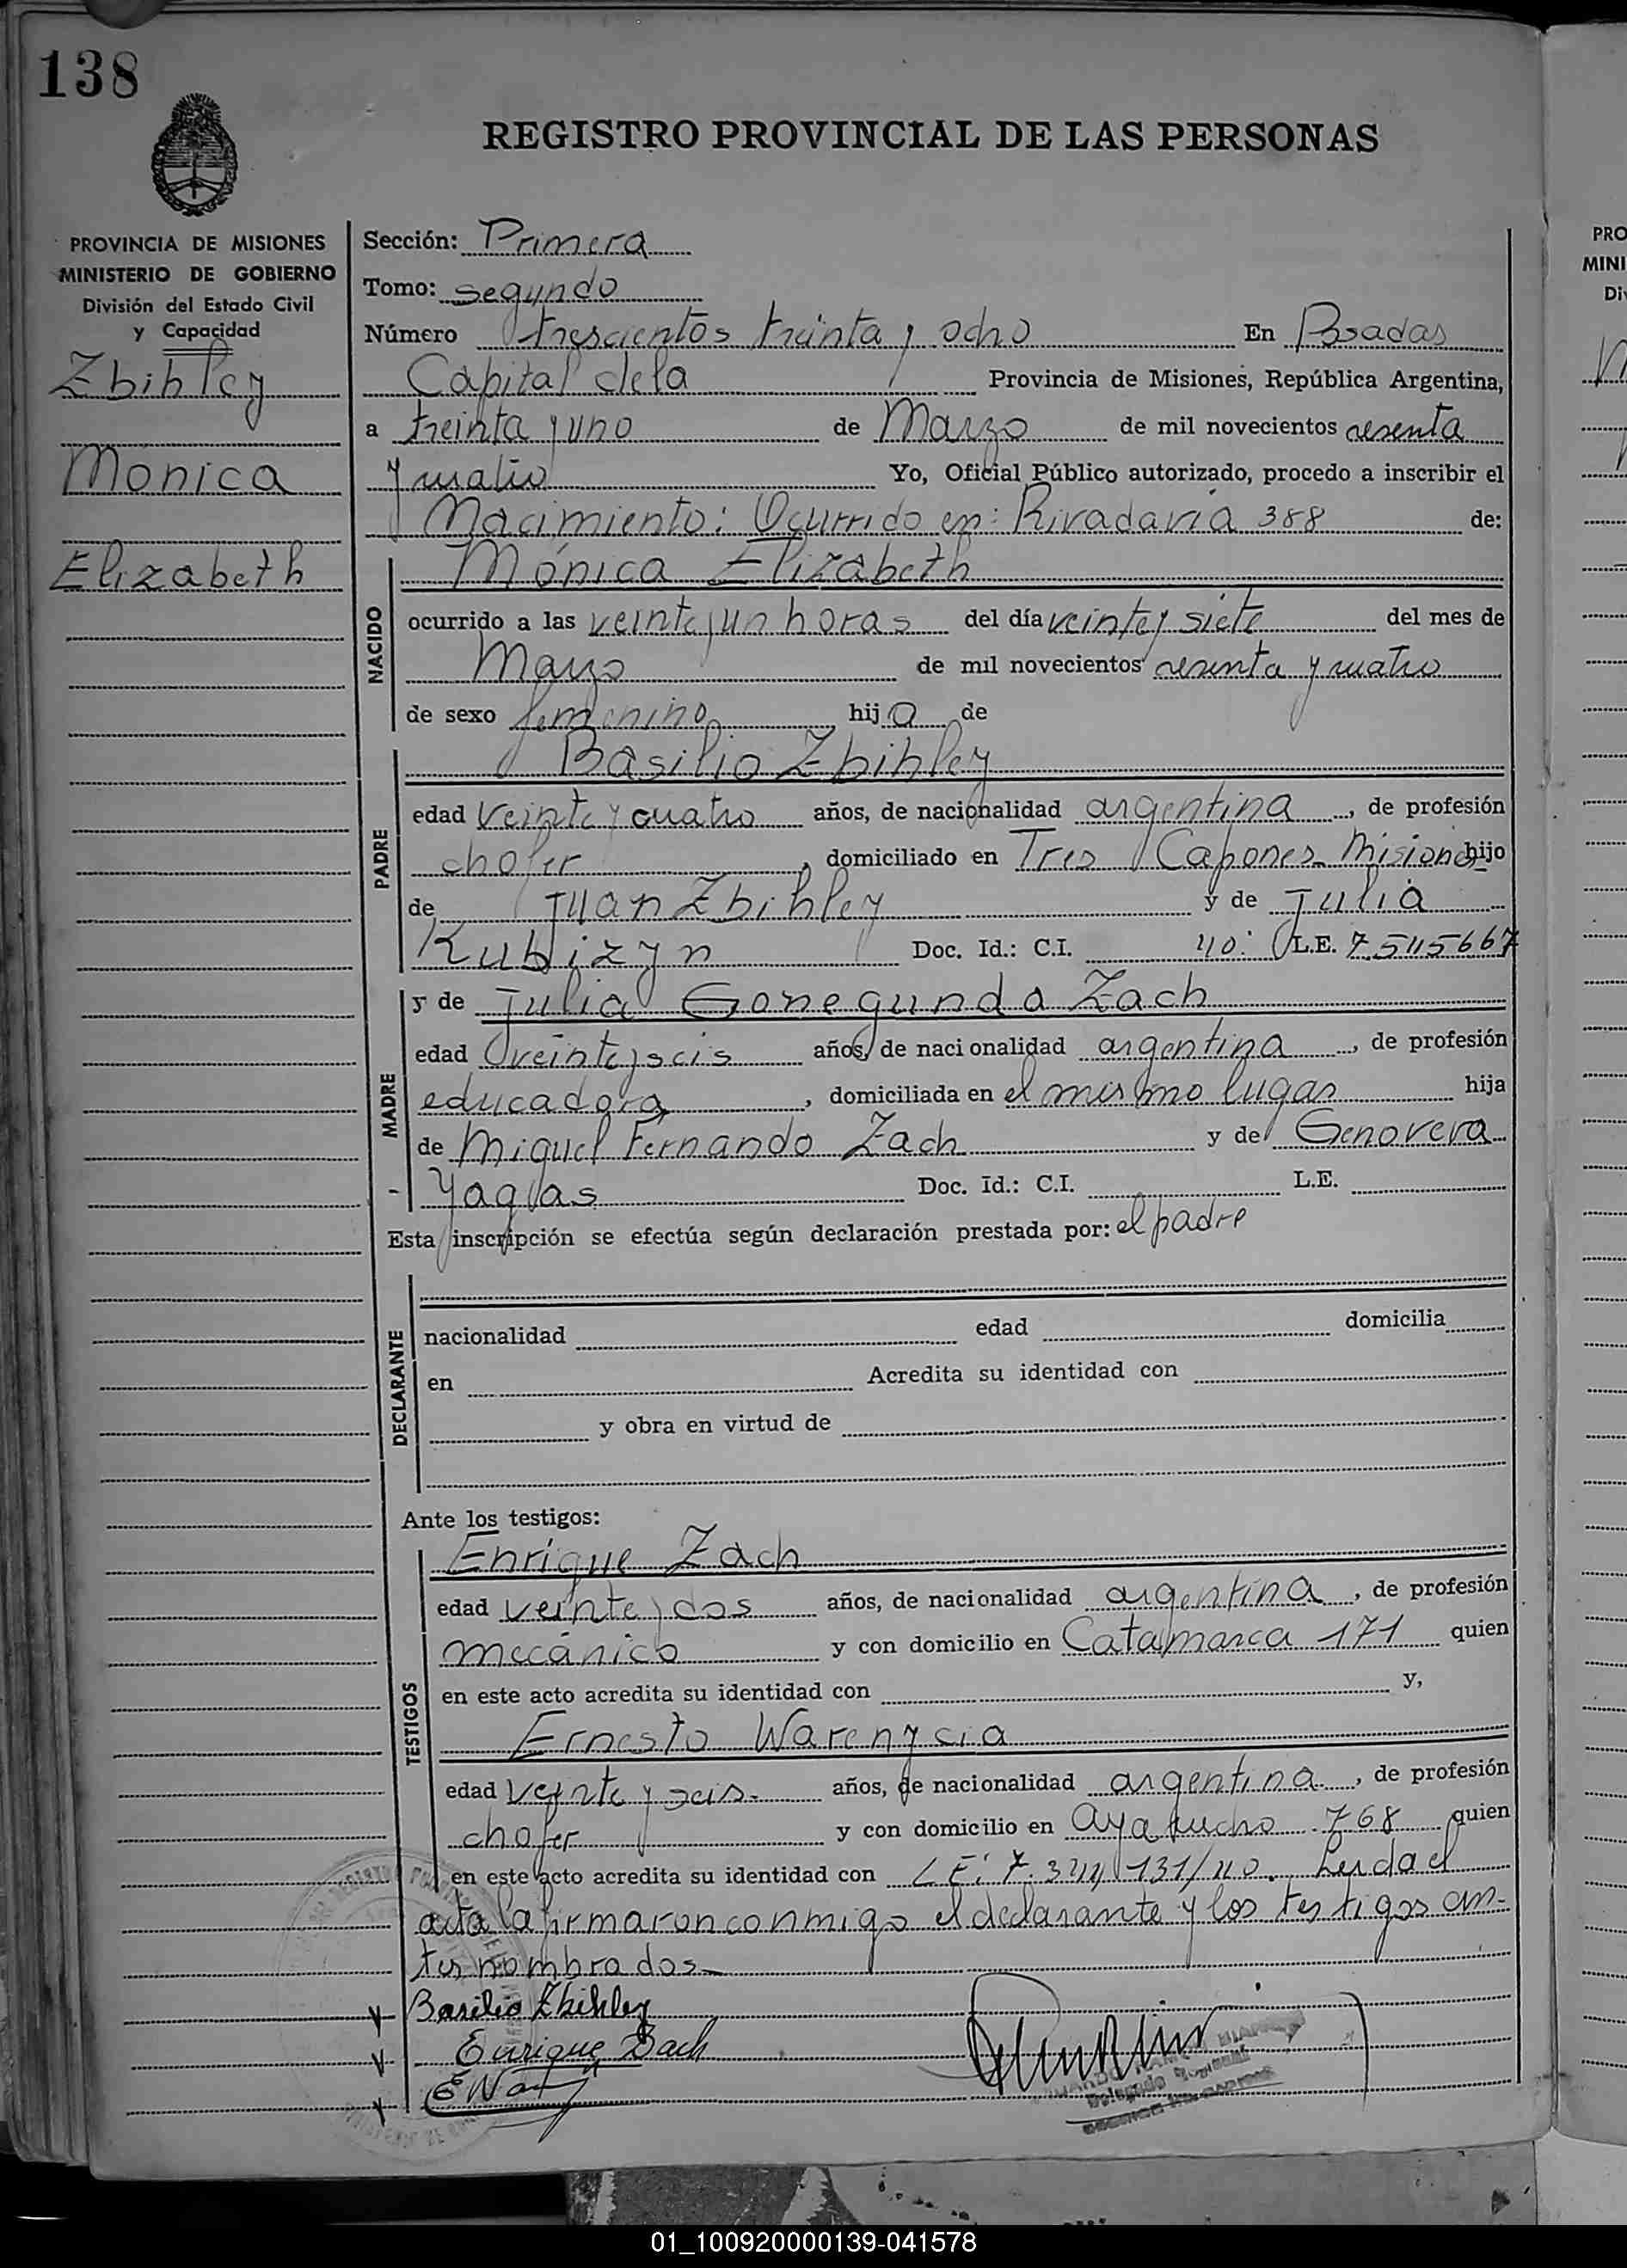 138
REGISTRO PROVINCIAL DE LAS PERSONAS
PROVINCIA DE MISIONES
MINISTERIO DE GOBIERNO
División del Estado Civil
y Capacidad
Zbihley
Mónica
Elizabeth
Sección: Primera
Tomo: segundo
Número trescientos treinta y ocho En Posadas
Capital de la Provincia de Misiones, República Argentina,
a treinta y uno de Marzo de mil novecientos sesenta
y cuatro Yo, Oficial Público autorizado, procedo a inscribir el
Nacimiento: Ocurrido en: Rivadavia 388 de:
NACIDO
Mónica Elizabeth
ocurrido a las veinte y un horas del día veinte y siete del mes de
Marzo de mil novecientos sesenta y cuatro
de sexo femenino hija de
PADRE
Basilio Zbihley
edad veinte y cuatro años, de nacionalidad argentina, de profesión
chofer, domiciliado en Tres Capones Misiones hijo
de Juan Zbihley y de Julia
Kubizyn Doc. Id.: C.I. L.E. 7.545667
MADRE
y de Julia Gonegunda Zach
edad veinte y seis años, de nacionalidad argentina, de profesión
educadora, domiciliada en el mismo lugar hija
de Miguel Fernando Zach y de Genoveva
Yaglas Doc. Id.: C.I. L.E.
Esta inscripción se efectúa según declaración prestada por: el padre
DECLARANTE
nacionalidad edad domicilia
en Acredita su identidad con
y obra en virtud de
Ante los testigos:
TESTIGOS
Enrique Zach
edad veinte y dos años, de nacionalidad argentina, de profesión
mecánico y con domicilio en Catamarca 171 quien
en este acto acredita su identidad con y,
Ernesto Warenycia
edad veinte y seis años, de nacionalidad argentina, de profesión
chofer y con domicilio en Ayacucho 768 quien
en este acto acredita su identidad con LE: 7.344131/40. Leida el
acta la firmaron conmigo el declarante y los testigos an-
tes nombrados
Basilio Zbihley
Enrique Zach
PRO
MINI
Di
01_100920000139-041578